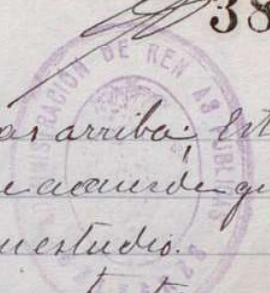 38
ADMINISTRACION DE RENTAS PUBLICAS
as arriba; Est
e acuerde qu
u estudio.